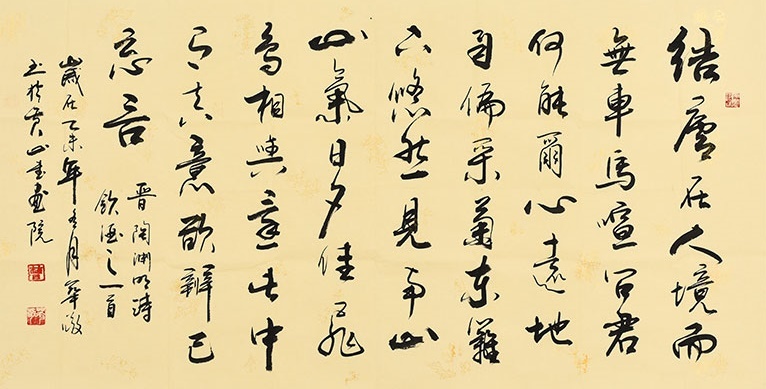 結廬在人境而
無車馬喧問君
何能爾心遠地
自偏采菊東籬
下悠然見南山
山氣日夕佳飛
鳥相與還此中
有真意欲辨已
忘言
晋陶淵明詩
飲酒之一首
歲在乙未年月華
書於黄山書畫院